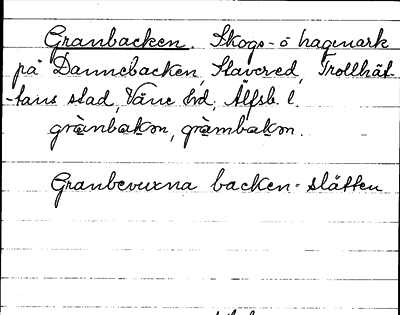 Granbacken. Skogs- o hagmark
på Dannebacken, Stavered, Trollhät-
-tans stad, Väne hd, Älfsb. l.
grànbakən, gràmbakən.
Granbevuxna backen-slätten